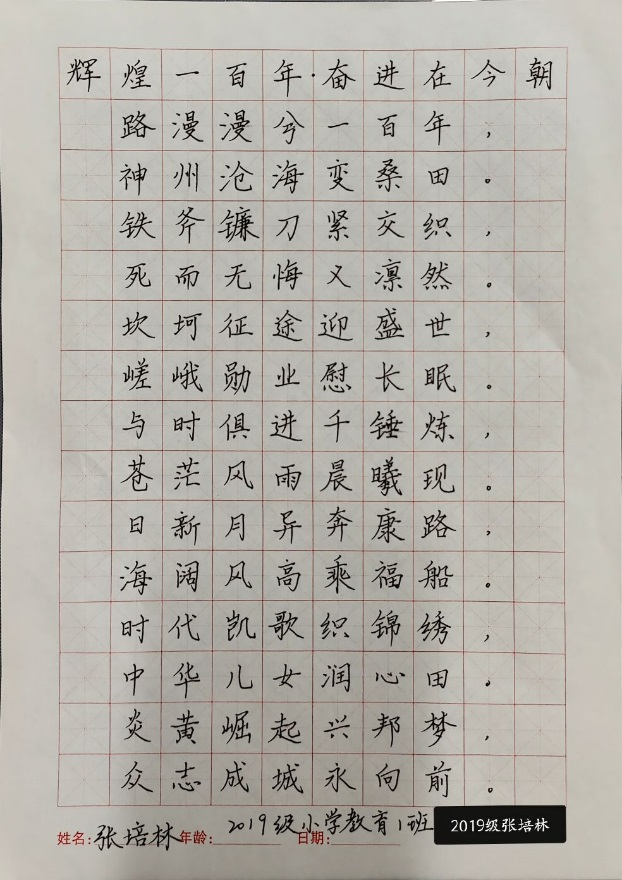 辉煌一百年·奋进在今朝
路漫漫兮一百年，
神州沧海变桑田。
铁斧镰刀紧交织，
死而无悔又凛然。
坎坷征途迎盛世，
嵯峨勋业慰长眠。
与时俱进千锤炼，
苍茫风雨晨曦现。
日新月异奔康路，
海阔风高乘福船。
时代凯歌织锦绣，
中华儿女润心田。
炎黄崛起兴邦梦，
众志成城永向前。
姓名：张培林 年龄：2019级小学教育1班 日期：
2019级张培林